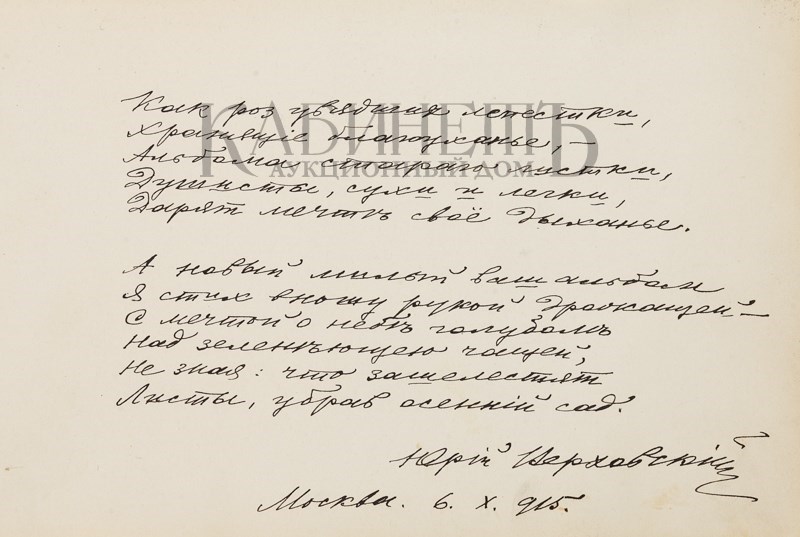 Как роз увядших лепестки,
Хранящіе благоуханье, –
Альбома старого листки,
Душисты, сухи и легки,
Дарят мечтѣ своё дыханье.
А новый милый ваш альбом
Я стих вношу рукой дрожащей –
С мечтой о небѣ голубомъ
Над зеленѣющею чащей,
Не зная: что зашелестят
Листы, убрав осенній сад.
Юрій Верховскій
Москва. 6. X. 915.
КАБИНЕТЪ
АУКЦИОННЫЙ ДОМ